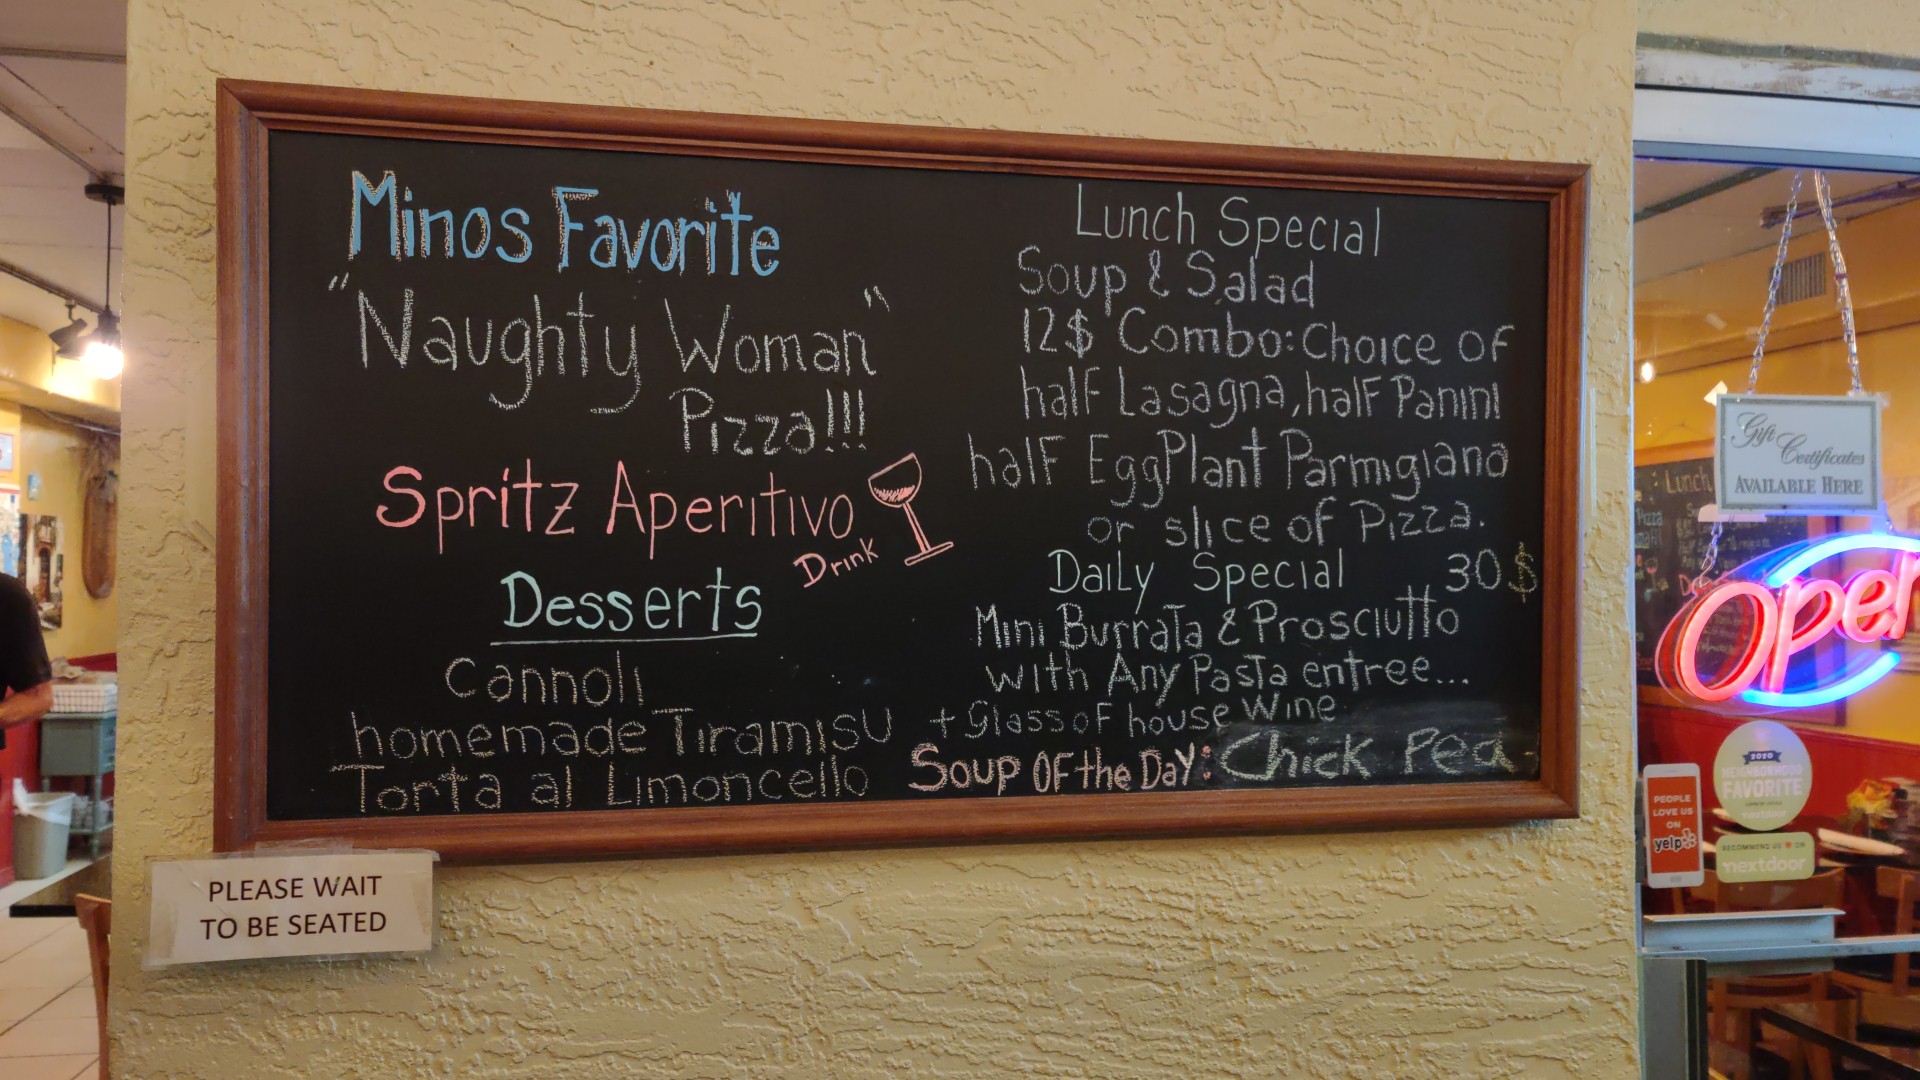 Minos Favorite
"Naughty Woman"
Pizza!!!
Spritz Aperitivo
Drink
Desserts
Cannoli
homemade Tiramisu
Torta al Limoncello
Lunch Special
Soup & Salad
12$ Combo: Choice of
half Lasagna, half Panini
half EggPlant Parmigiana
or slice of Pizza.
Daily Special 30$
Mini Burrata & Prosciutto
with Any Pasta entree...
+ Glass of house Wine
Soup Of the Day: Chick Pea
PLEASE WAIT
TO BE SEATED
Gift
Certificates
AVAILABLE HERE
Lunch
Pizza
Open
2020
NEIGHBORHOOD
FAVORITE
PEOPLE
LOVE US
ON
yelp
RECOMMEND US ♥ ON
nextdoor